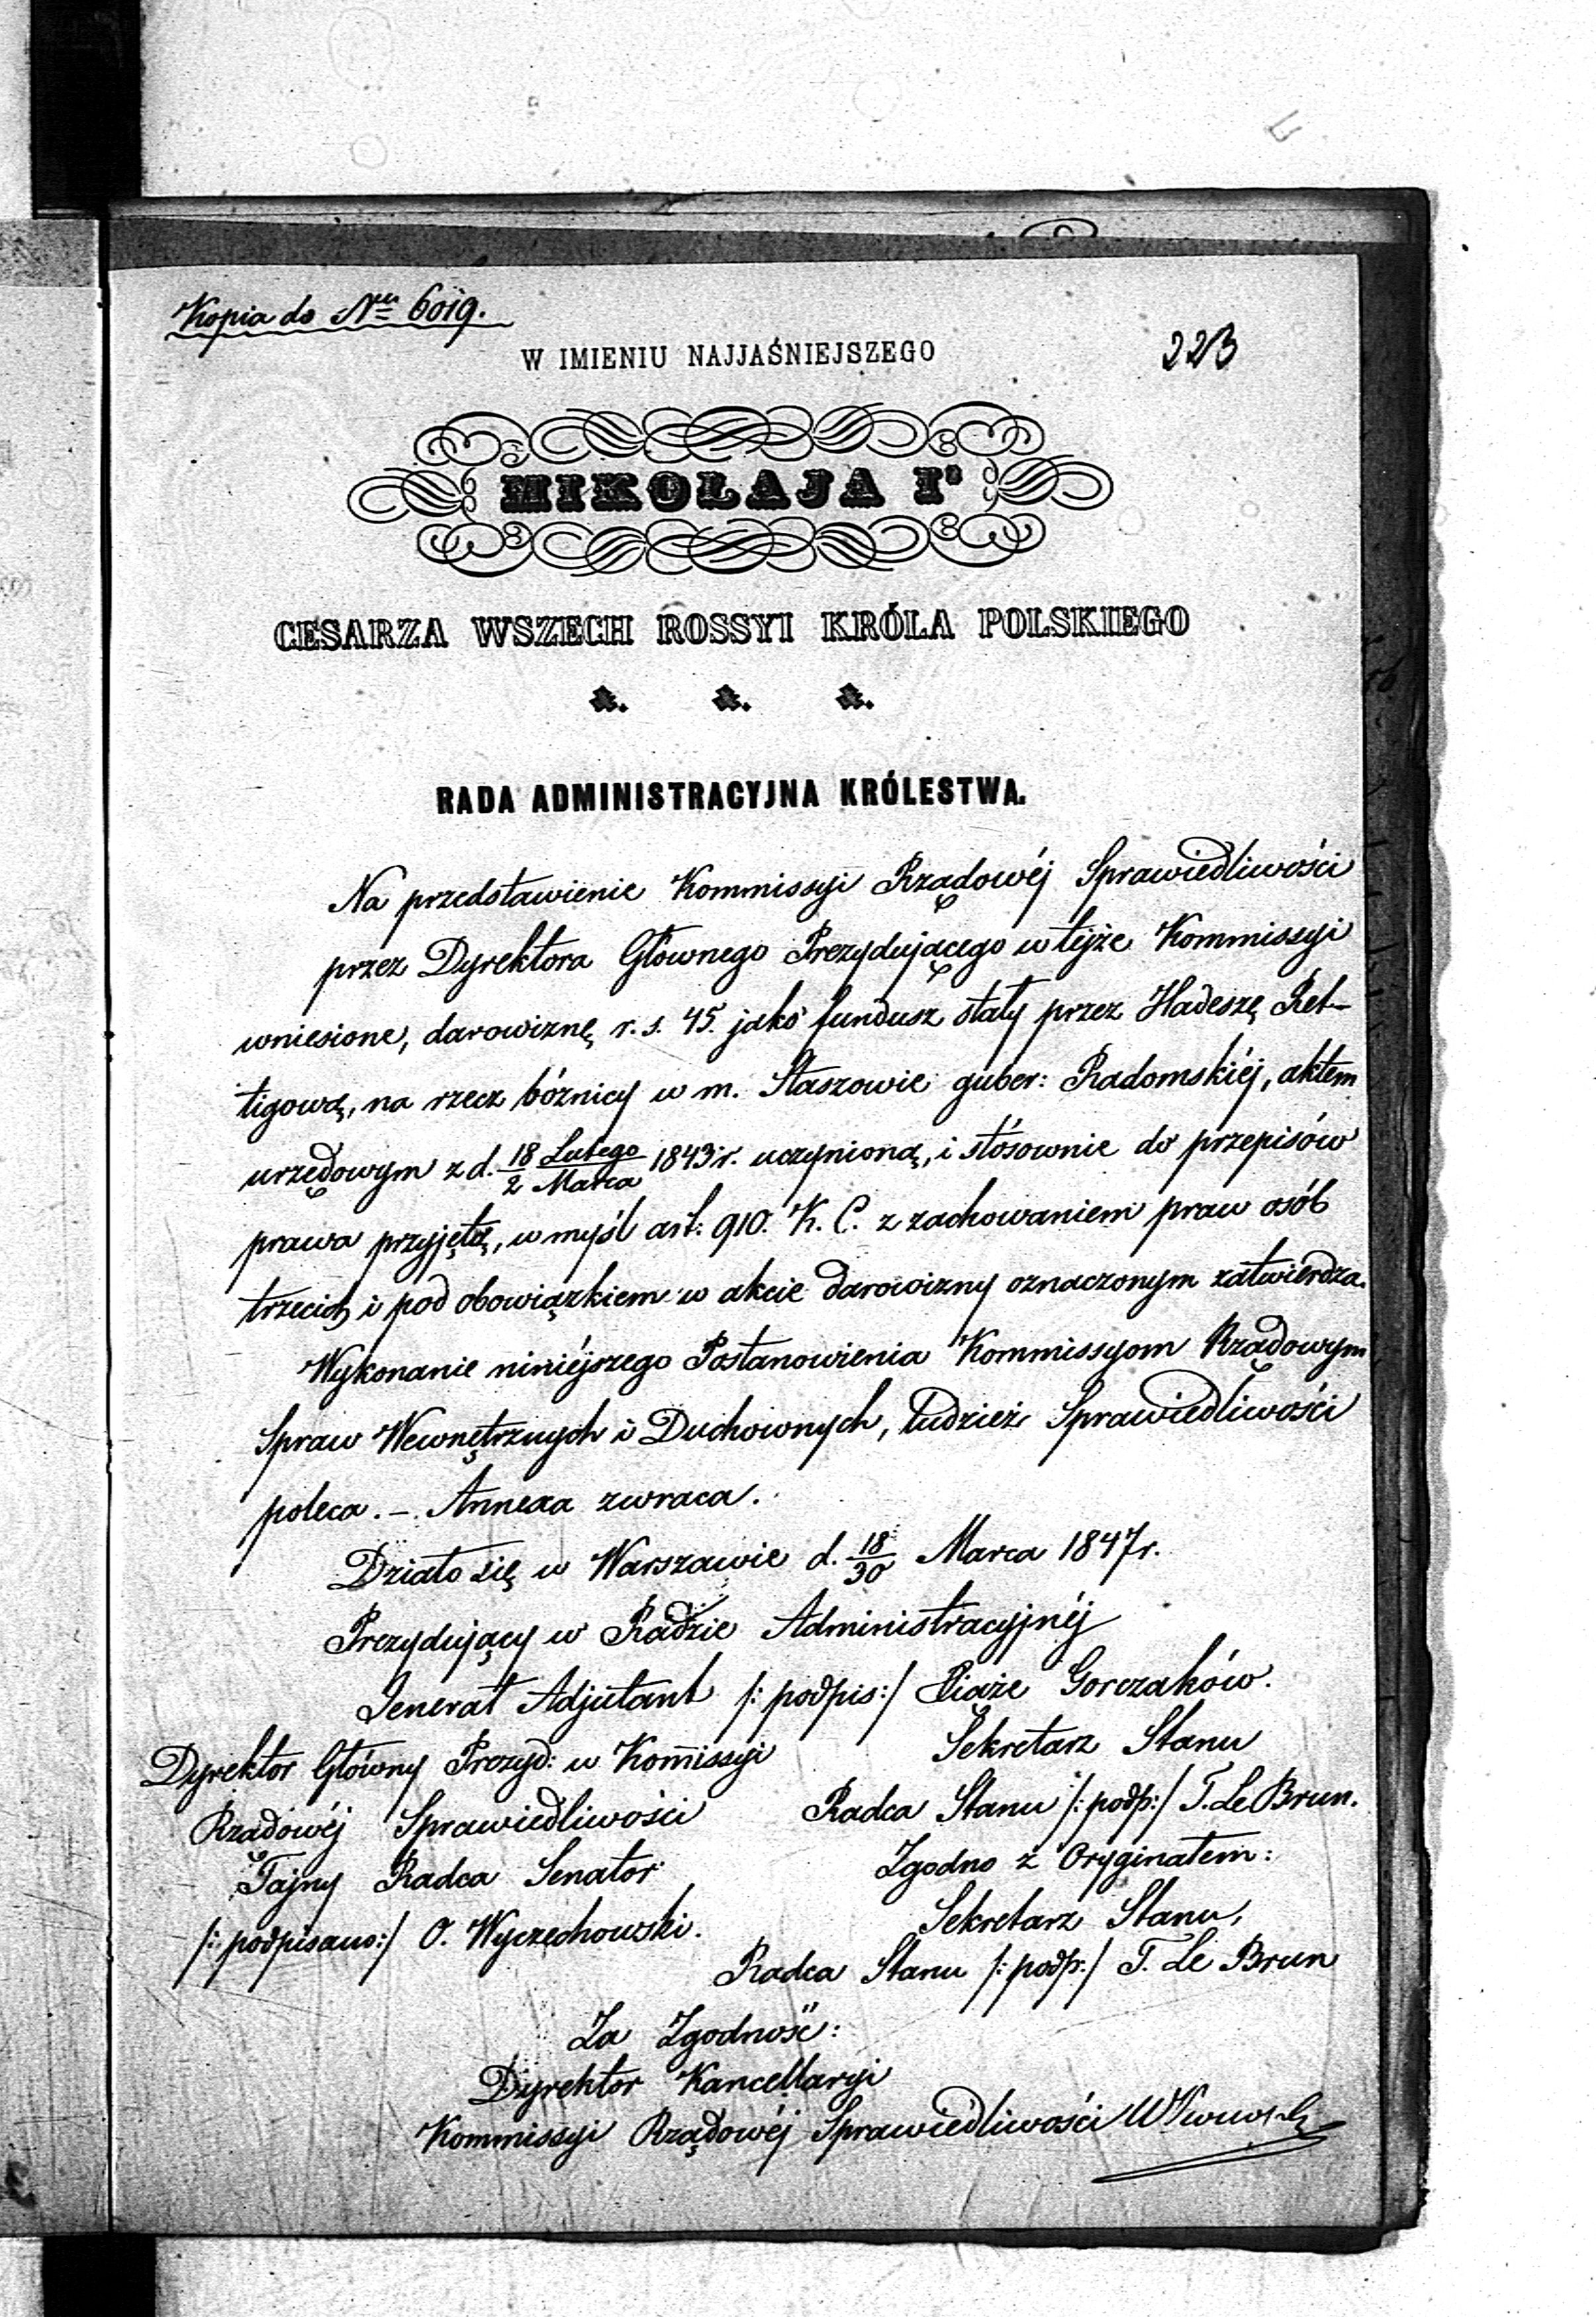 Kopia do Nru 6019.
223
W IMIENIU NAJJAŚNIEJSZEGO
MIKOŁAJA Igo
CESARZA WSZECH ROSSYI KRÓLA POLSKIEGO
&. &. &.
RADA ADMINISTRACYJNA KRÓLESTWA.
Na przedstawienie Kommissyi Rządowéj Sprawiedliwości
przez Dyrektora Głownego Prezydującego w téjże Kommissyi
wniesione, darowiznę r. s. 45. jako fundusz stały przez Hadeszę Ret-
tigową, na rzecz bóżnicy w m. Staszowie guber: Radomskiéj, aktem
urzędowym z d. 18 Lutego / 2 Marca 1843 r. uczynioną, i stósownie do przepisów
prawa przyjętą, w myśl art: 910. K. C. z zachowaniem praw osób
trzecich i pod obowiązkiem w akcie darowizny oznaczonym zatwierdza.
Wykonanie niniéjszego Postanowienia Kommissyom Rządowym
Spraw Wewnętrznych i Duchownych, tudzież Sprawiedliwości
poleca. – Annexa zwraca.
Działo się w Warszawie d. 18/30 Marca 1847 r.
Prezydujący w Radzie Administracyjnéj
Jenerał Adjutant /: podpis:/ Xiąże Gorczaków.
Dyrektor Główny Prezyd: w Kom̄issyi
Rządowéj Sprawiedliwości
Tajny Radca Senator
/: podpisano:/ O. Wyczechowski.
Sekretarz Stanu
Radca Stanu /: podp:/ T. Le Brun.
Zgodno z Oryginałem:
Sekretarz Stanu,
Radca Stanu /: podp:/ T. Le Brun
Za Zgodność:
Dyrektor Kancellaryi
Kommissyi Rządowéj Sprawiedliwości